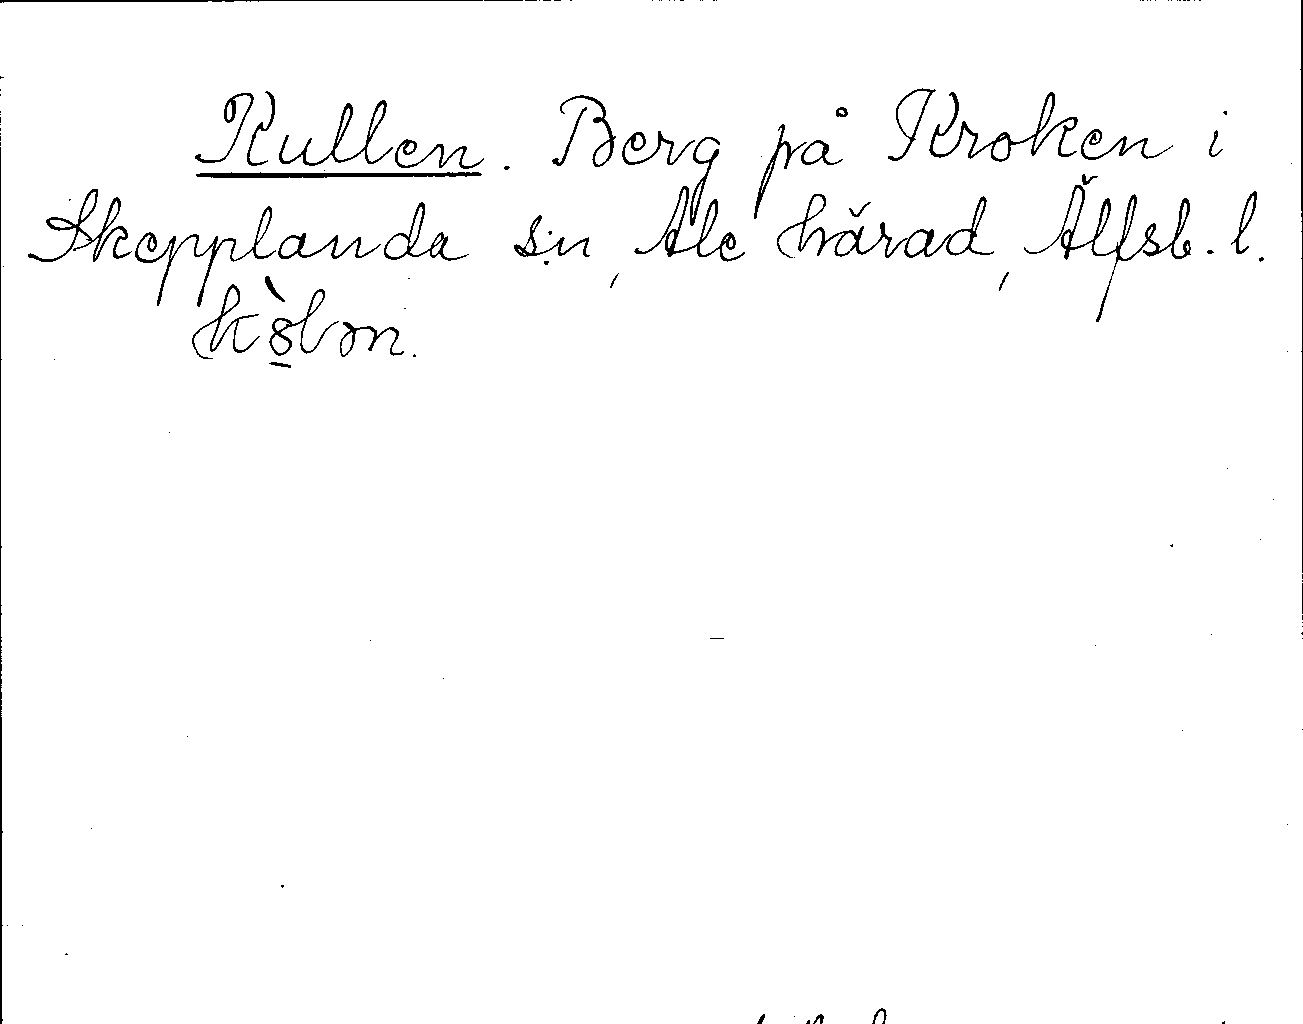 Kullen. Berg på Kroken i
Skepplanda s:n, Ale härad, Älfsb. l.